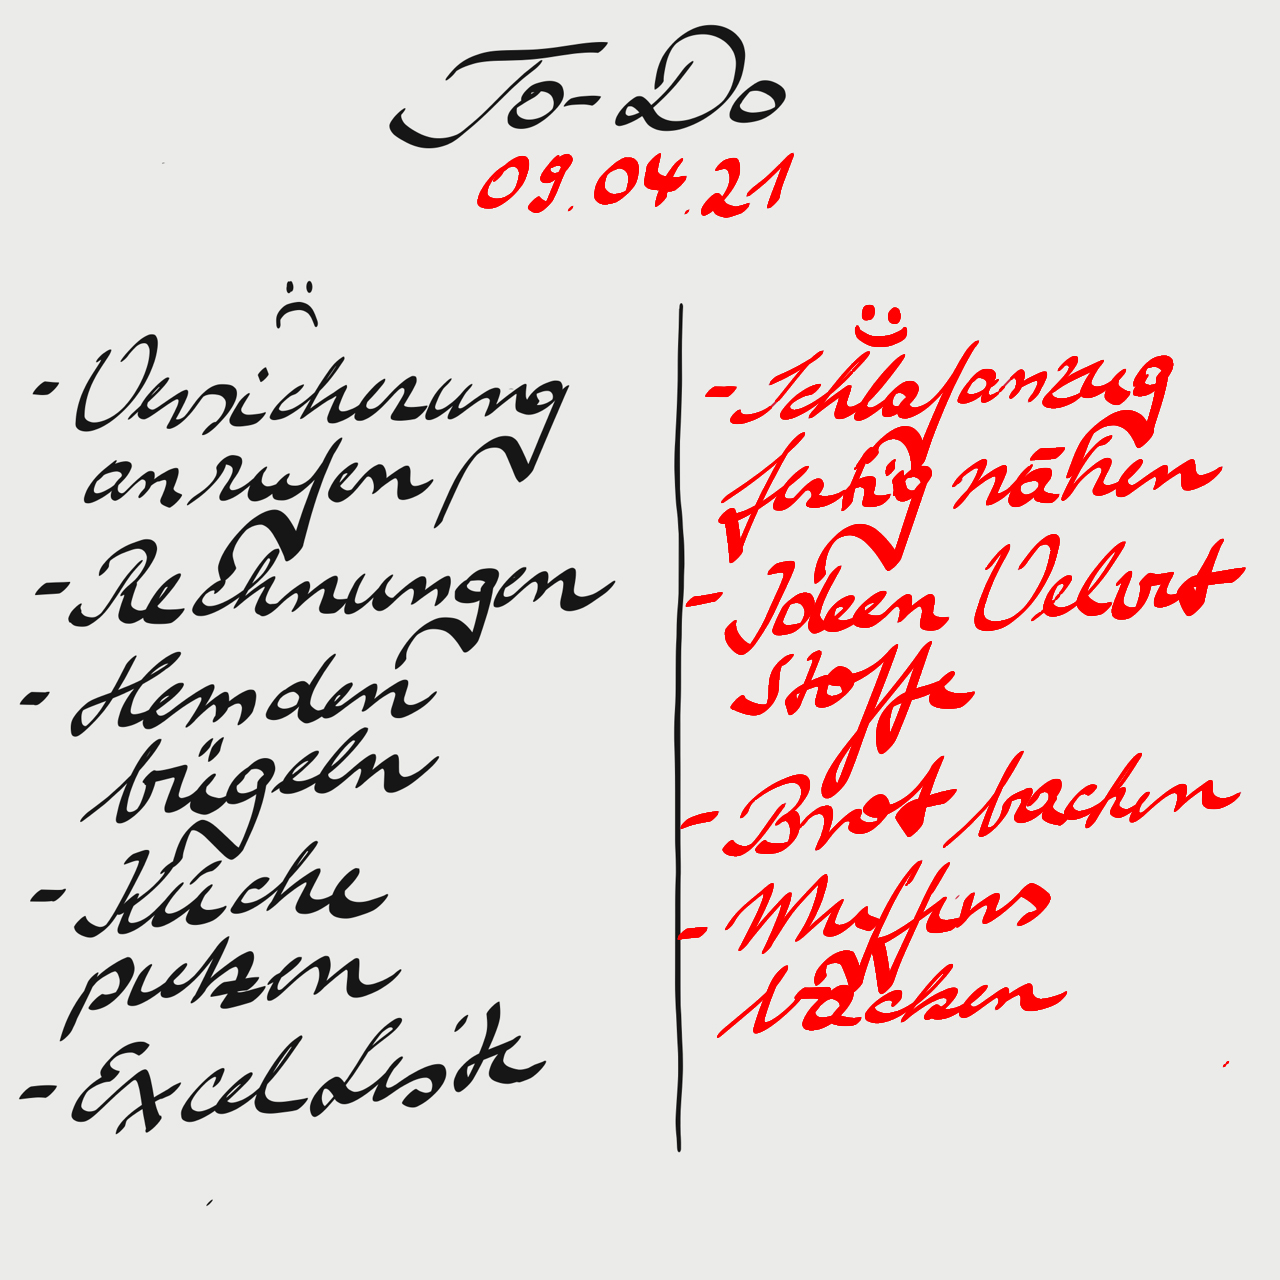 To-Do
09.04.21
- Versicherung
anrufen
- Rechnungen
- Hemden
bügeln
- Küche
putzen
- Excel Liste
- Schlafanzug
fertig nähen
- Ideen Velvet
Stoffe
- Brot backen
- Muffins
backen